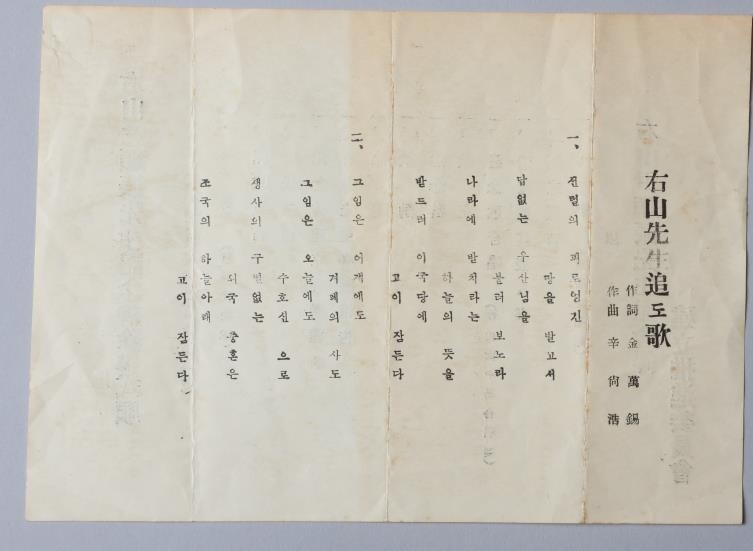 右山先生追도歌
作詞 金萬錫
作曲 辛尙浩
一、
선렬의 피로엉긴
땅을 밟고서
답없는 우산님을
불러 보노라
나라에 받치라는
하늘의 뜻을
받드러 이국땅에
고이 잠든다
二、
그임은 어깨에도
겨레의 사도
그임은 오늘에도
수호신 으로
생사의 구별없는
외국 충혼은
조국의 하늘아래
고이 잠든다